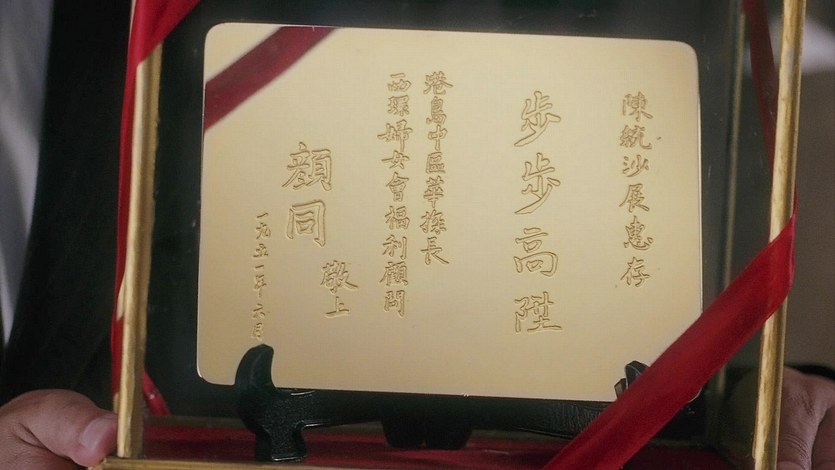 陳統沙展惠存
步步高陞
港島中區華探長
西環婦女會福利顧問
顏同
敬上
一九五一年六月